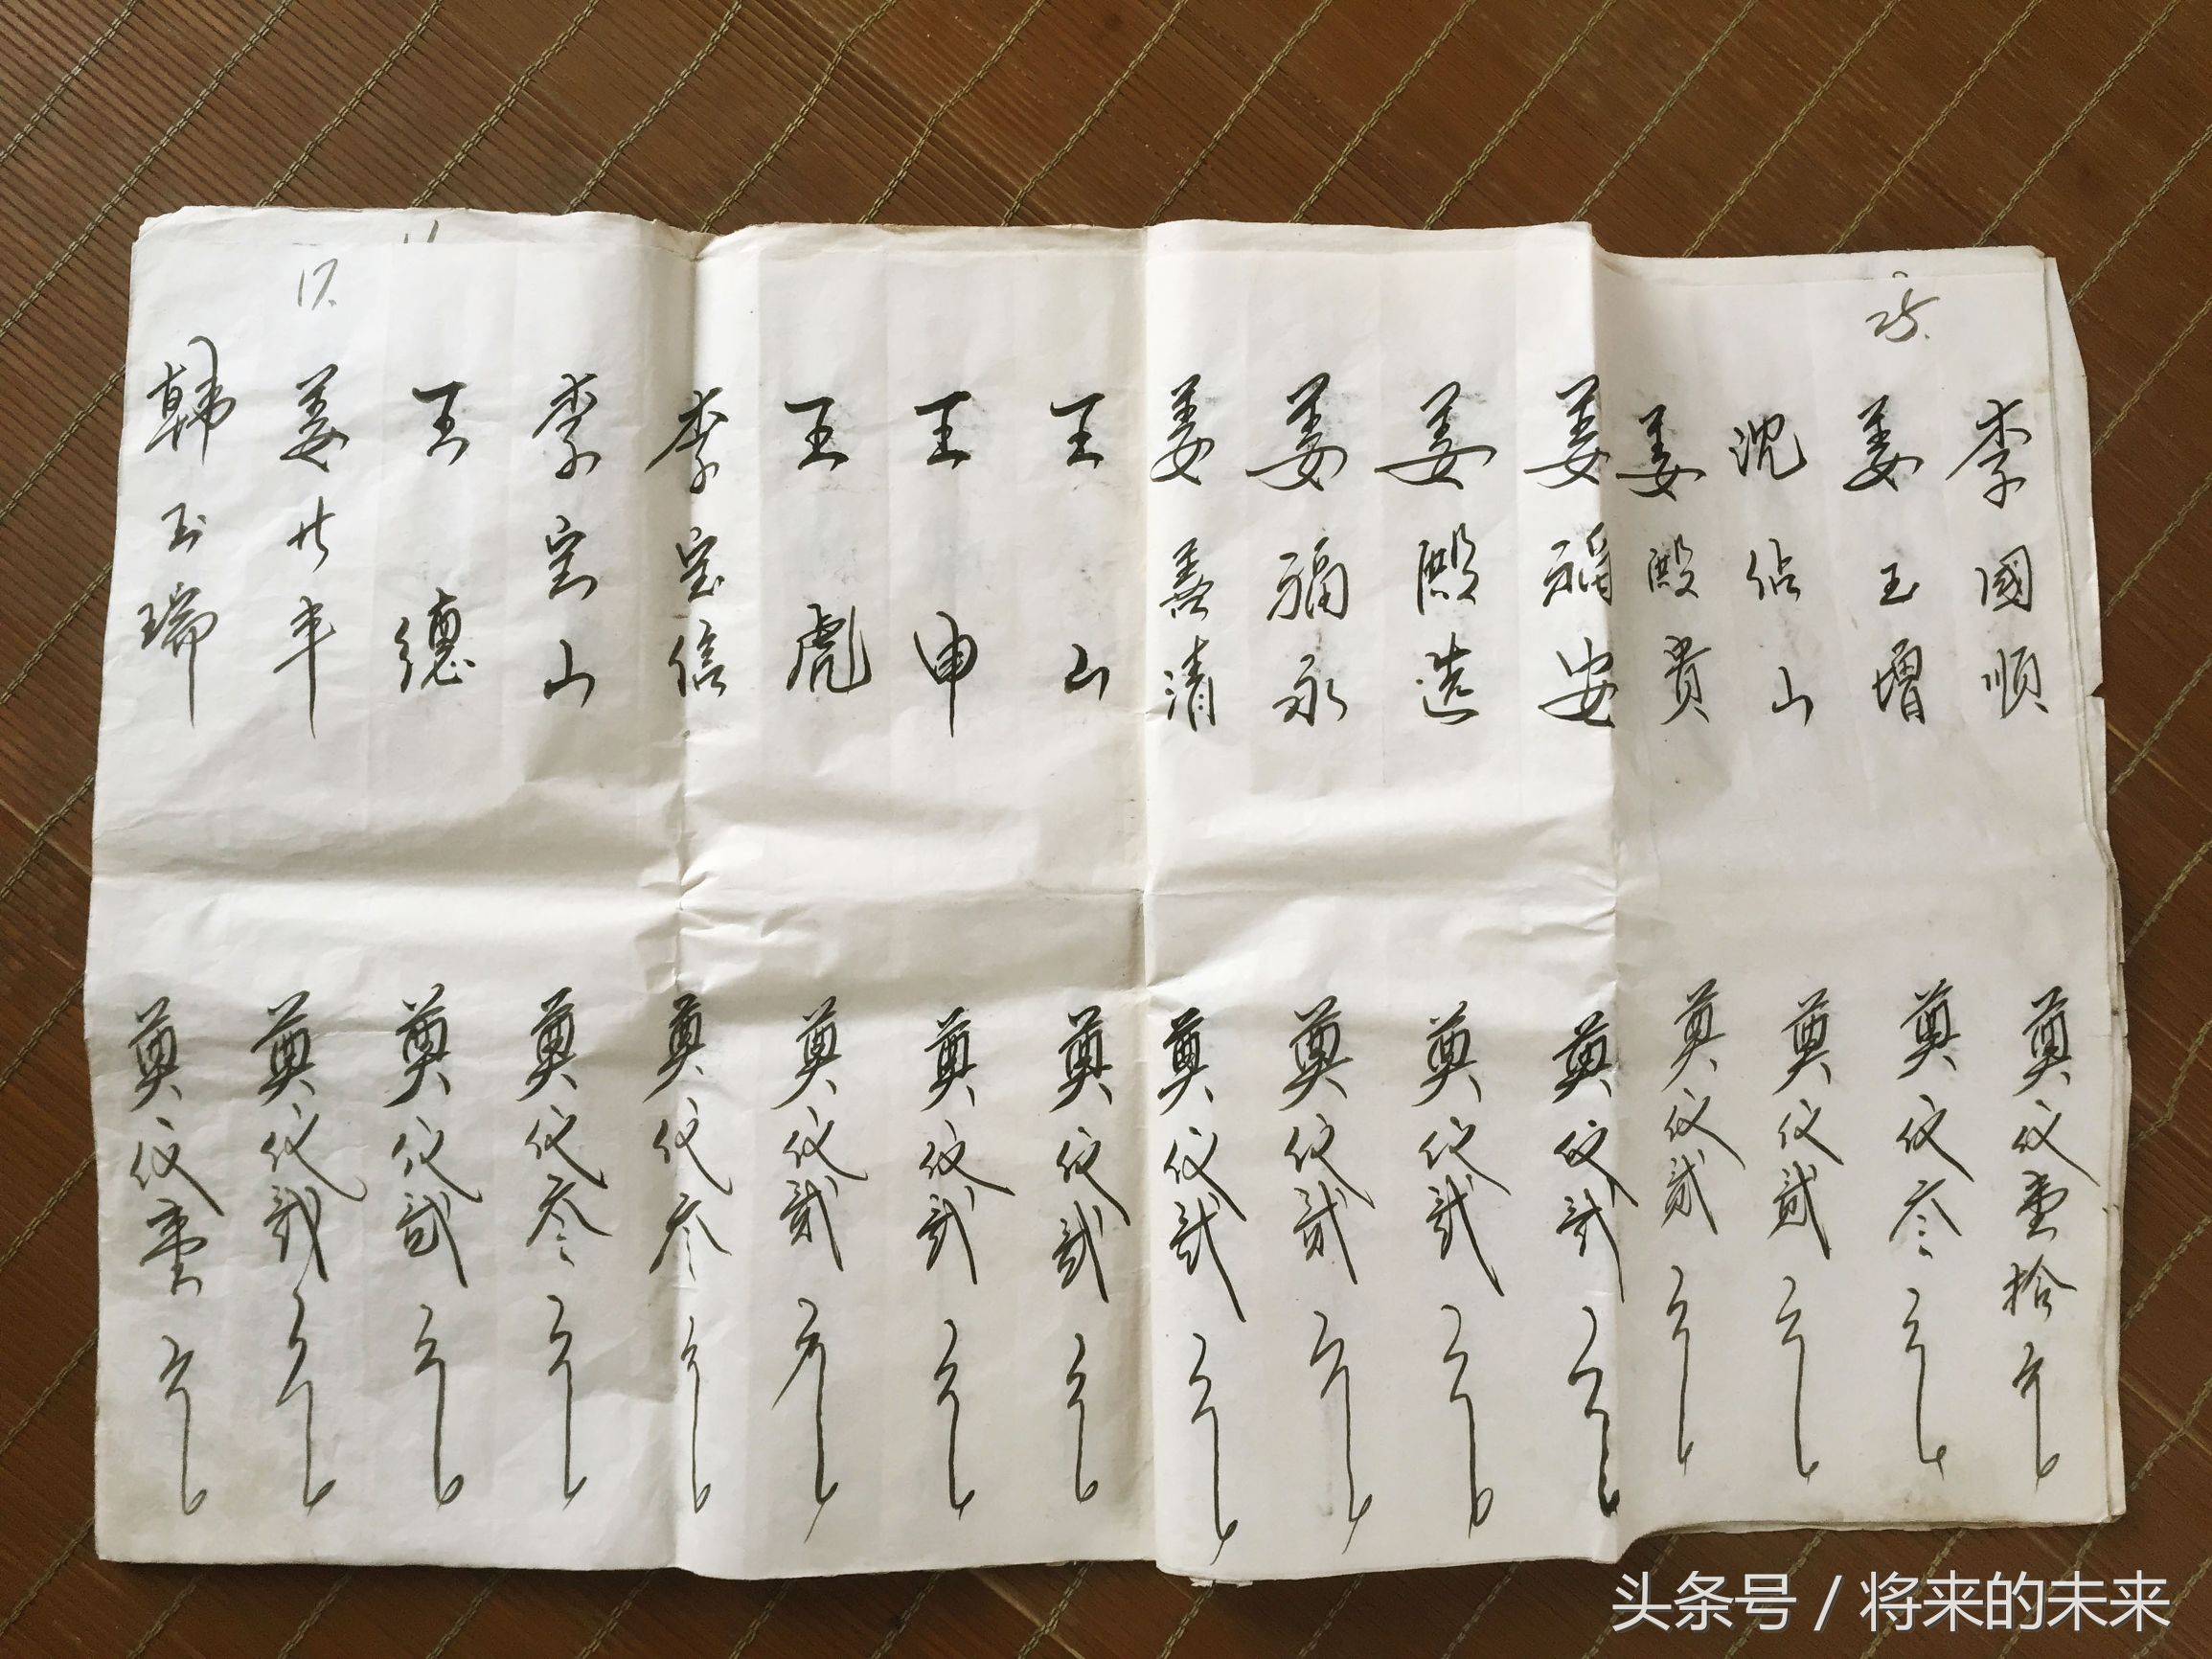 25.
李國順 奠仪壹拾元
姜玉增 奠仪叁元
沈佔山 奠仪貳元
姜殿贵 奠仪貳元
姜福安 奠仪貳元
姜殿选 奠仪貳元
姜福永 奠仪貳元
姜善清 奠仪貳元
王山 奠仪貳元
王申 奠仪貳元
王彪 奠仪貳元
李宝信 奠仪叁元
李宝山 奠仪叁元
王德 奠仪貳元
17.
姜 年 奠仪貳元
韩玉瑞 奠仪壹元
头条号 / 将来的未来